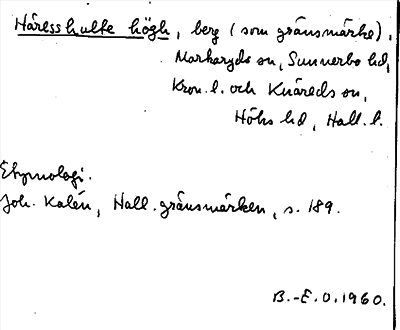 Håresshulte högh, berg (som gränsmärke),
Markaryds sn, Sunnerbo hd,
Kron. l. och Knäreds sn,
Höks hd, Hall. l.
Etymologi.
Joh. Kalén, Hall. gränsmärken, s. 189.
B.-E.O. 1960.